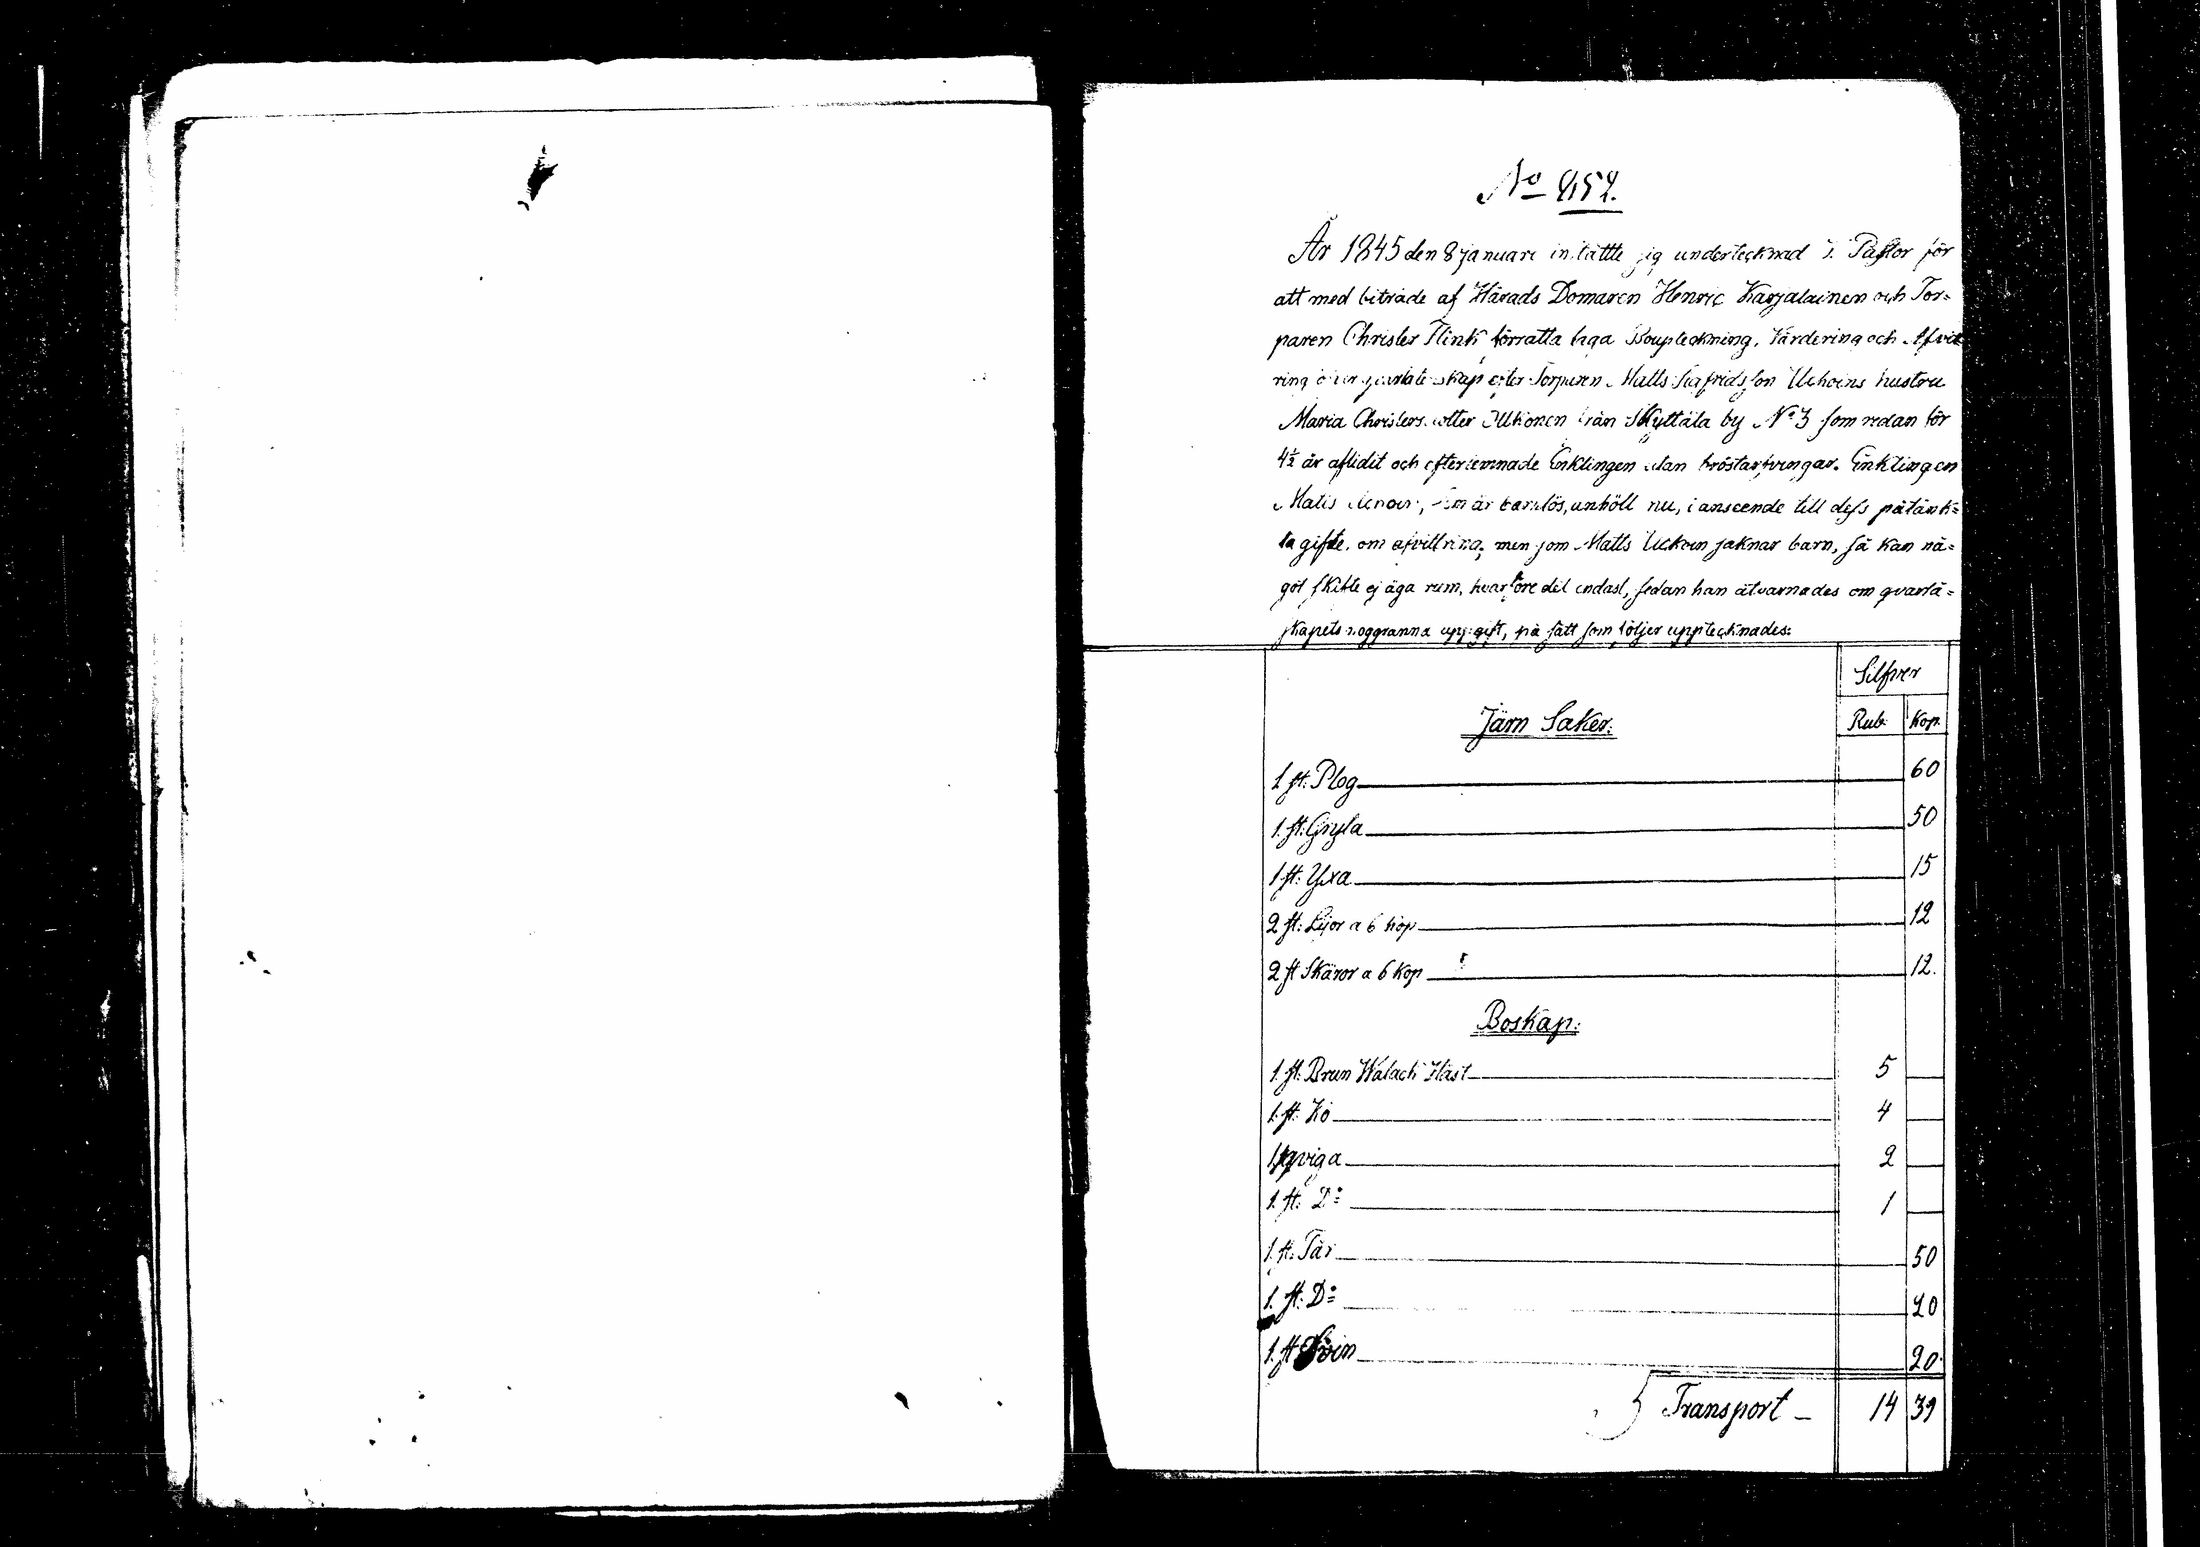 No 252.
År 1845 den 8 januari intättte jig undertecknad v. Pastor för
att med biträde af Härads Domaren Henric Karjalainen och Tor=
paren Christer Flink förrätta laga Bouptekning, Värdering och Afvit
ring öfver qvarlåtenskap efter Torparen Matts Siafridsson Uckoins hustru
Maria Christersdotter Ilkonen från Skyttälä by No 3 som redan för
4½ år aflidit och efterlemnade Enklingen utan bröstarfvingar. Enklingen
Matts Uckoin, som är barnlös, anhöll nu, i anseende till dess påtänk=
ta gifte, om afvittring; men som Matts Uckoin saknar barn, så kan nå=
got skifte ej äga rum, hvarföre det endast, sedan han åtvarnades om qvarlå=
skapets noggranna uppgift, på sätt som följer upptecknades:
Silfver
Järn Saker: Rub. Kop.
1 st: Plog 60
1. st: Gryta 50
1 st: Yxa 15
2 st: Lijor a 6 kop 12
2 st Skäror a 6 Kop 12.
Boskap:
1. st: Brun Walach Häst 5
1. st: Ko 4
1 qviga 2
1. st: Do 1
1. st: Får 50
1. st: Do 20
1. st Svin 20.
Transport 14 39